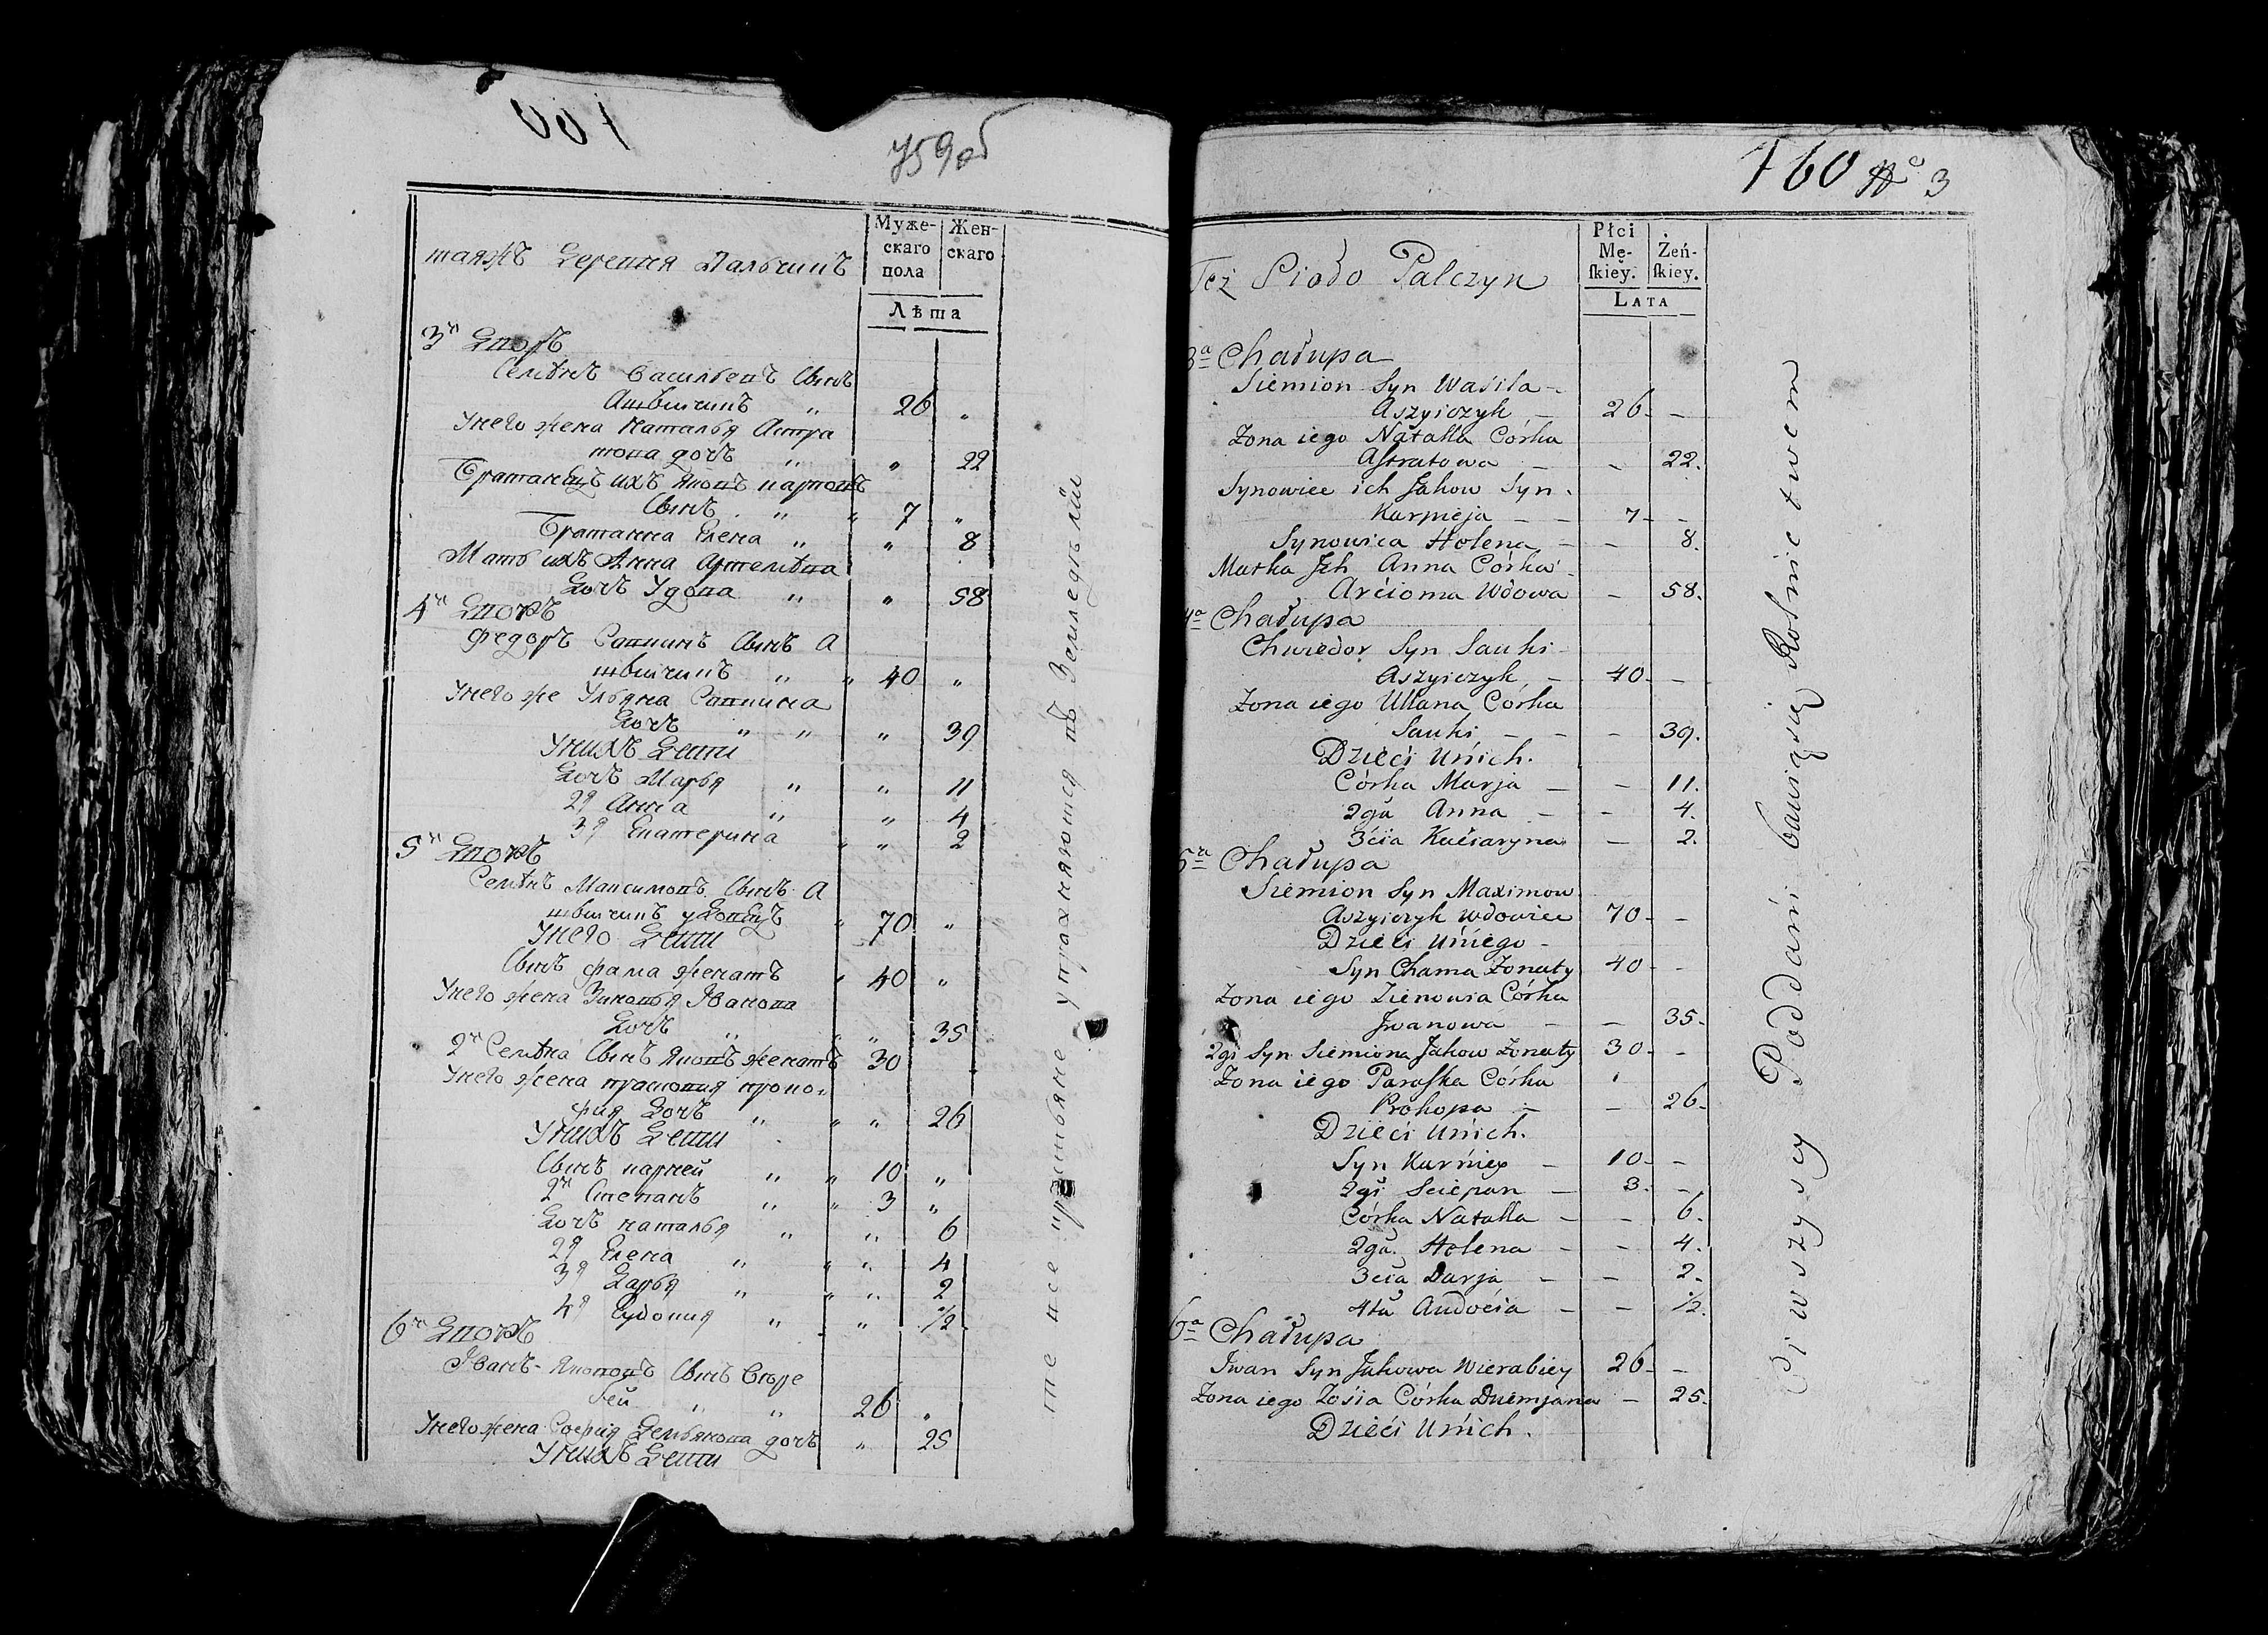 759об
Муже-
скаго
пола
Жен-
скаго
Лѣта
таяжъ Деревня Пальчинъ
3й Дворъ
Семіонъ Васильевъ Сынъ
Ашвинчинъ " 26 "
Унего жена Наталья Астра
това дочь " " 22
Братанецъ ихъ Яковъ карповъ
Сынъ " " 7 "
Братанна Елена " " 8
Мать ихъ Анна Артеміова
Дочь Удова " " 58
4й Дворъ
Федоръ Савкинъ Сынъ А
швинчинъ " " 40 "
Унего же Ульяна Савкина
Дочь " " " 39
Унихъ Дети
Дочь Марья " " 11
2я Анна " " 4
3я Екатерина " " 2
5й Дворъ
Семіонъ Максимовъ Сынъ А
швинчинъ удовецъ " 70 "
Унего Дети
Сынъ фама женатъ " 40 "
Унего жена Зиновья Иванова
Дочь " " " 35
2й Семіона Сынъ Яковъ женатъ 30
Унего жена прасковия проко-
фия Дочь " " " 26
Унихъ Дети
Сынъ карней " " 10 "
2й Степанъ " " 3 "
Дочь наталья " " 6
2я Елена " " " 4
3я Дарья " " " 2
4я Евдокия " " 1/2
6й Дворъ
Иванъ Якововъ Сынъ Вере
бей " " 26 "
Унего жена София Демьянова дочь " 25
Унихъ Дети
те все крестьяне упражняются въ Земледѣліи
760 No 3
Płci
Mę-
ſkiey.
Żeń-
ſkiey.
LATA
Też Sioło Palczyn
3a Chałupa
Siemion Syn Wasila -
Aszyiczyk - 26 - -
Żona iego Natalla Córka
Astratowa - - 22.
Synowiec ich Jakow Syn -
Karpieja - - 7 - -
Synowica Holena - - 8.
Matka Ich Anna Córka -
Arcioma Wdowa - 58.
4a Chałupa
Chwiedor Syn Sauki -
Aszyiczyk - 40 - -
Żona iego Ullana Córka
Sauki - - - 39.
Dzieci Unich.
Córka Marja - - 11.
2ga Anna - - 4.
3cia Kaciaryna - 2.
5ta Chałupa
Siemion Syn Maximow
Aszyiczyk Wdowiec 70 - -
Dzieci Uniego -
Syn Chama Żonaty 40 - -
Żona iego Zienowia Córka
Jwanowa - - 35.
2gi Syn Siemiona Jakow Żonaty 30 - -
Żona iego Paraſka Córka
Prokopa - - 26.
Dzieci Unich.
Syn Karniey - 10 - -
2gi Sciepan - 3 - -
Córka Natalla - - 6.
2ga Holena - - 4.
3cia Darja - - 2.
4ta Audocia - - 1/2.
6a Chałupa
Jwan Syn Jakowa Wierabiey 26 - -
Żona iego Zosia Córka Dziemjana - 25.
Dzieci Unich.
Ci wszyscy Poddani bawiąsię Rolnictwem